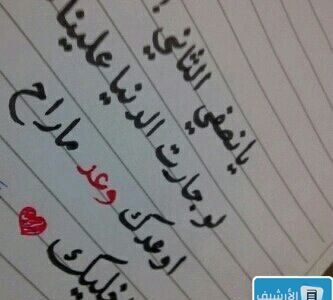 يا نصفي الثاني
لو جارت الدنيا علينا
اوعدك وعد ماراح
اخليك
الأرشيف